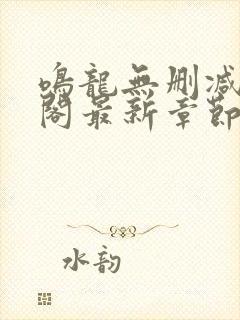 鳴龍無删减
閣最新章節
水韵